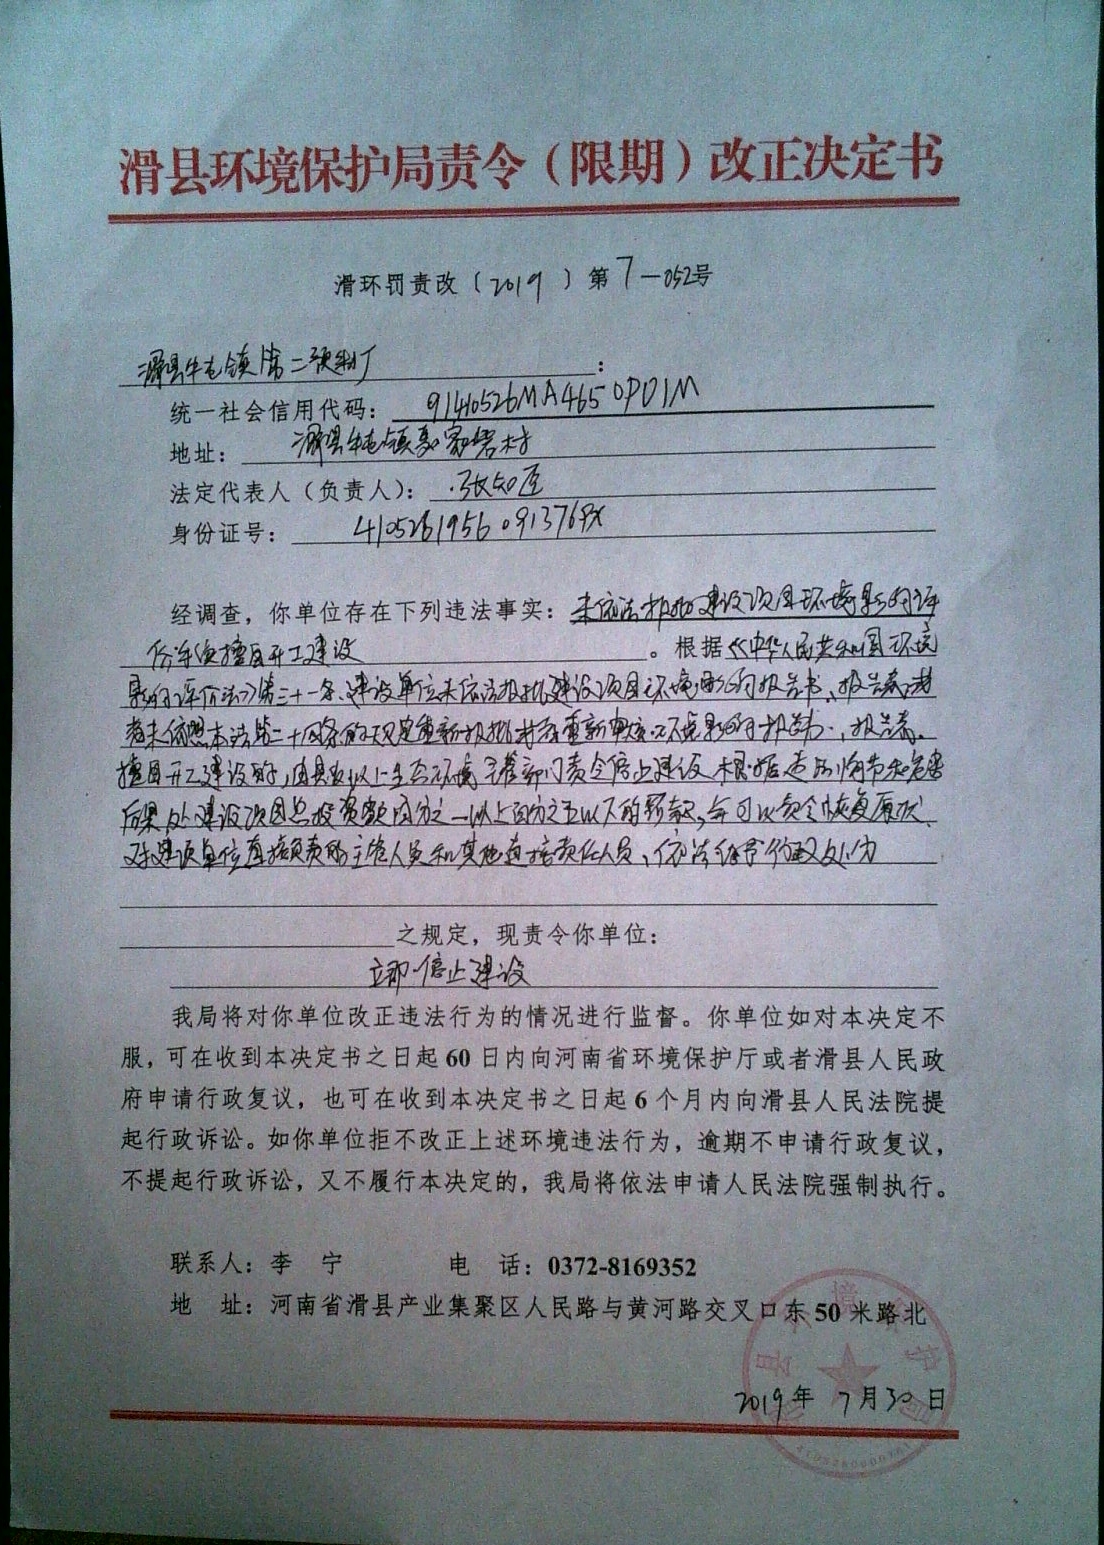 滑县环境保护局责令（限期）改正决定书
滑环罚责改〔2019〕第7—052号
滑县牛屯镇第二预制厂：
统一社会信用代码：91410526MA4650PD1M
地址：滑县牛屯镇 村
法定代表人（负责人）：张
身份证号：41052619560913769X
经调查，你单位存在下列违法事实：未依法报批建设项目环境影响评
价 擅自开工建设。根据《中华人民共和国环境
影响评价法》第三十一条、建设单位未依法报批建设项目环境影响报告书、报告表，或
者未依照本法第二十四条的规定重新报批或者重新审核环境影响报告书、报告表，
擅自开工建设的，由县级以上生态环境主管部门责令停止建设，根据违法情节和危害
后果，处建设项目总投资额百分之一以上百分之五以下的罚款，并可以责令恢复原状，
对建设单位直接负责的主管人员和其他直接责任人员，依法给予行政处分
之规定，现责令你单位：
立即停止建设
我局将对你单位改正违法行为的情况进行监督。你单位如对本决定不
服，可在收到本决定书之日起60日内向河南省环境保护厅或者滑县人民政
府申请行政复议，也可在收到本决定书之日起6个月内向滑县人民法院提
起行政诉讼。如你单位拒不改正上述环境违法行为，逾期不申请行政复议，
不提起行政诉讼，又不履行本决定的，我局将依法申请人民法院强制执行。
联系人：李 宁 电 话：0372-8169352
地 址：河南省滑县产业集聚区人民路与黄河路交叉口东50米路北
2019年7月30日